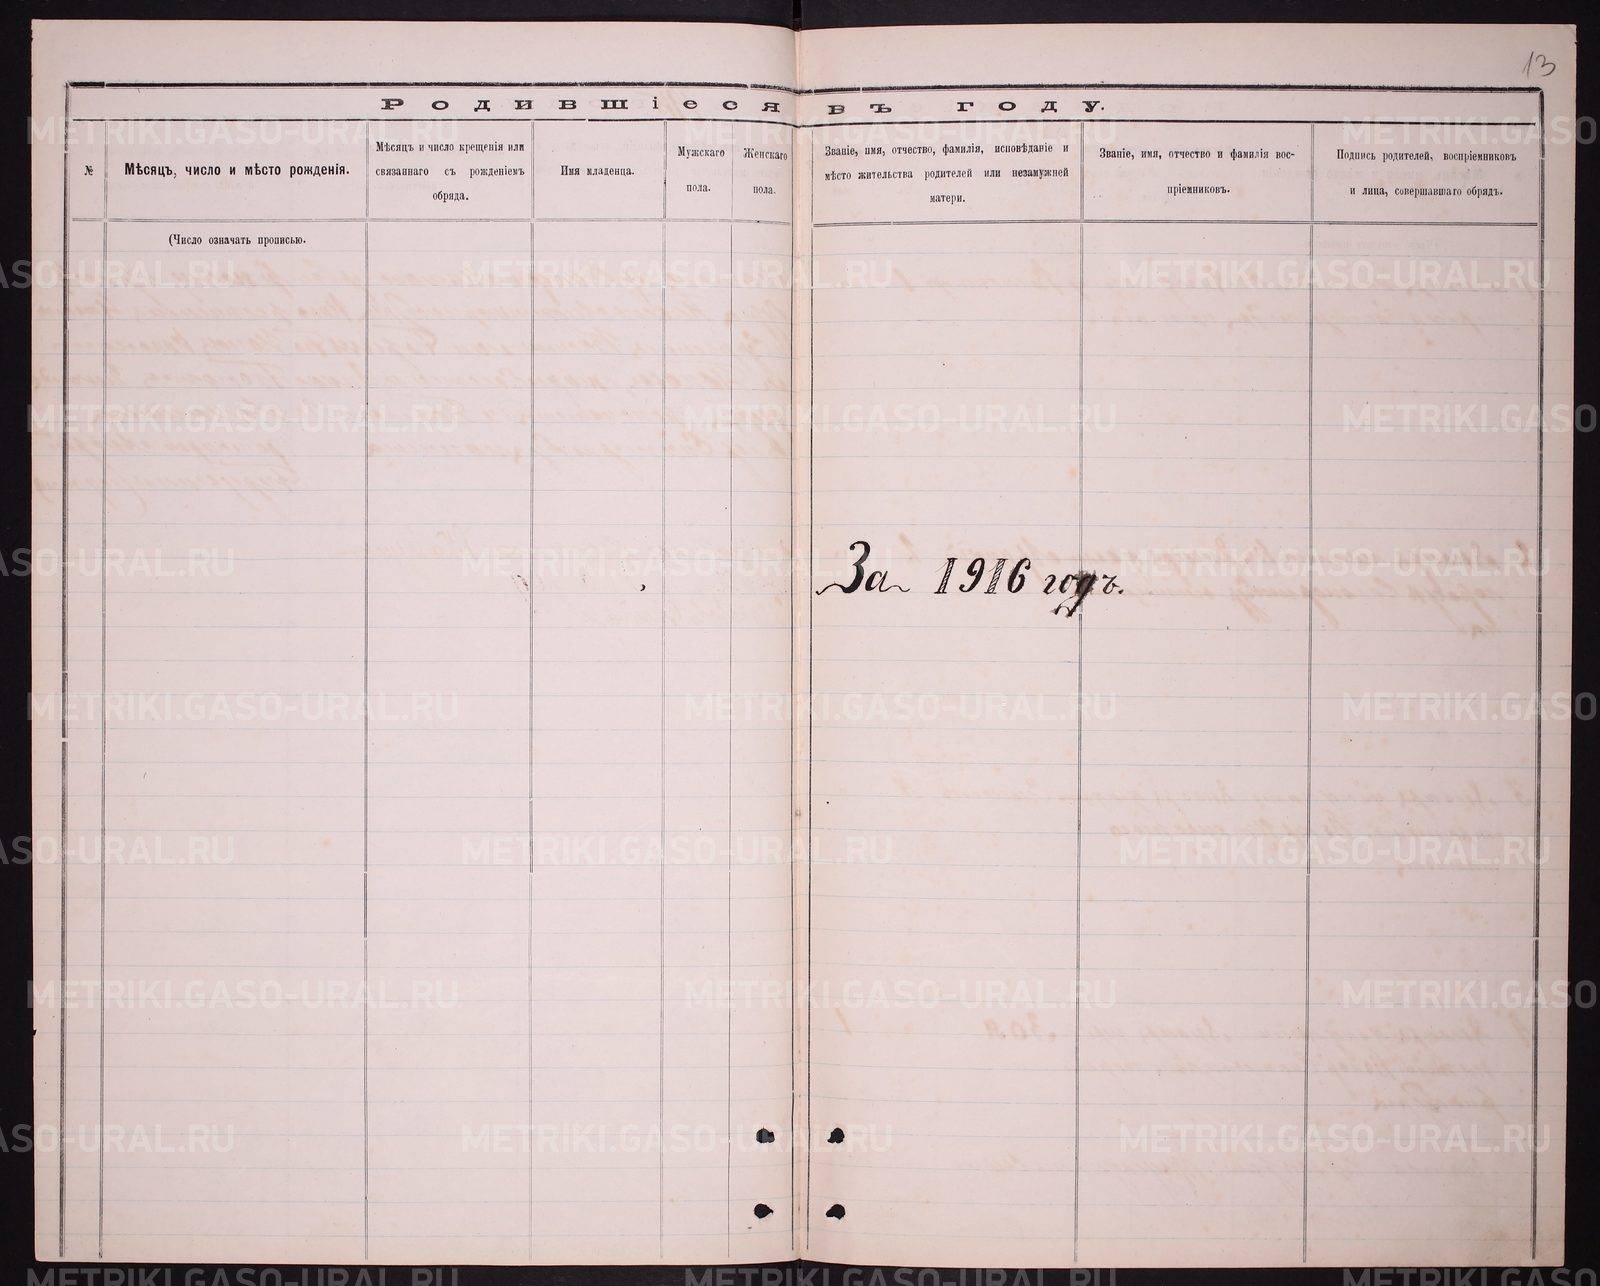 13
Родившіеся въ году.
№
Мѣсяцъ, число и мѣсто рожденія.
Мѣсяцъ и число крещенія или
связаннаго съ рожденіемъ
обряда.
Имя младенца.
Мужскаго
пола.
Женскаго
пола.
Званіе, имя, отчество, фамилія, исповѣданіе и
мѣсто жительства родителей или незамужней
матери.
Званіе, имя, отчество и фамилія вос-
пріемниковъ.
Подпись родителей, воспріемниковъ
и лица, совершавшаго обрядъ.
(Число означать прописью.
За 1916 годъ.
METRIKI.GASO-URAL.RU